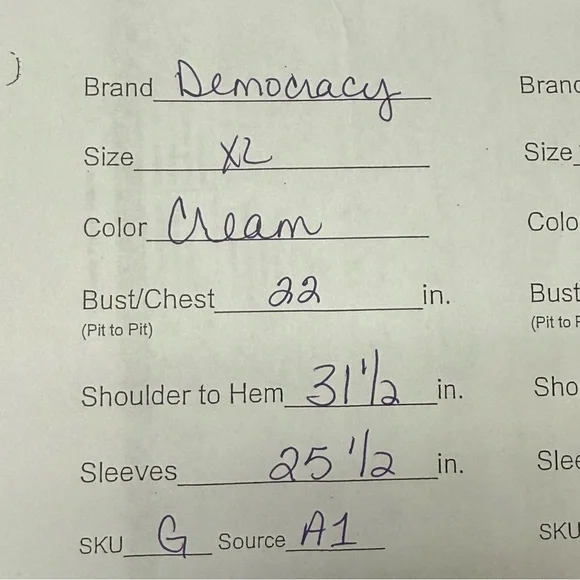 ) Brand Democracy Brand
Size XL Size
Color Cream Colo
Bust/Chest 22 in. Bust
(Pit to Pit) (Pit to P
Shoulder to Hem 31 1/2 in. Sho
Sleeves 25 1/2 in. Slee
SKU G Source A1 SKU